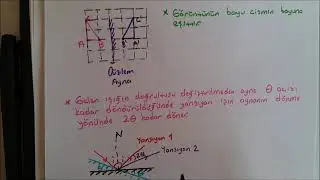 * Görüntünün boyu cismin boyuna
eşittir
A
Düzlem
Ayna
* Gelen ışığın doğrultusu değiştirilmeden ayna θ açısı
kadar döndürüldüğünde yansıyan ışın aynanın dönme
yönünde 2θ kadar döner
N
Yansıyan 1
Yansıyan 2